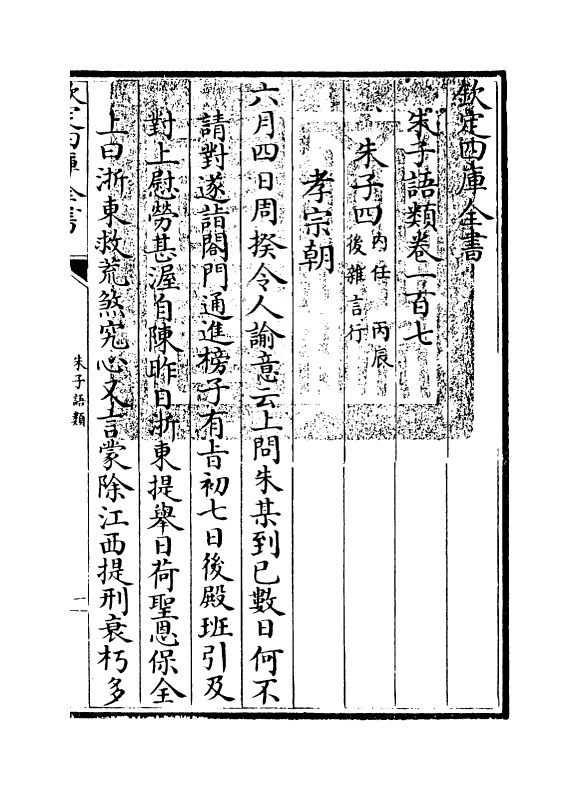 欽定四庫全書
朱子語類卷一百七
朱子四内任 丙辰後雜言行
孝宗朝
六月四日周揆令人諭意云上問朱某到已數日何不
請對遂詣閤門通進榜子有㫖初七日後殿班引及
對上慰勞甚渥自陳昨日浙東提舉日荷聖恩保全
上曰浙東救荒煞究心又言蒙除江西提刑衰朽多
欽定四庫全書
朱子語類
一